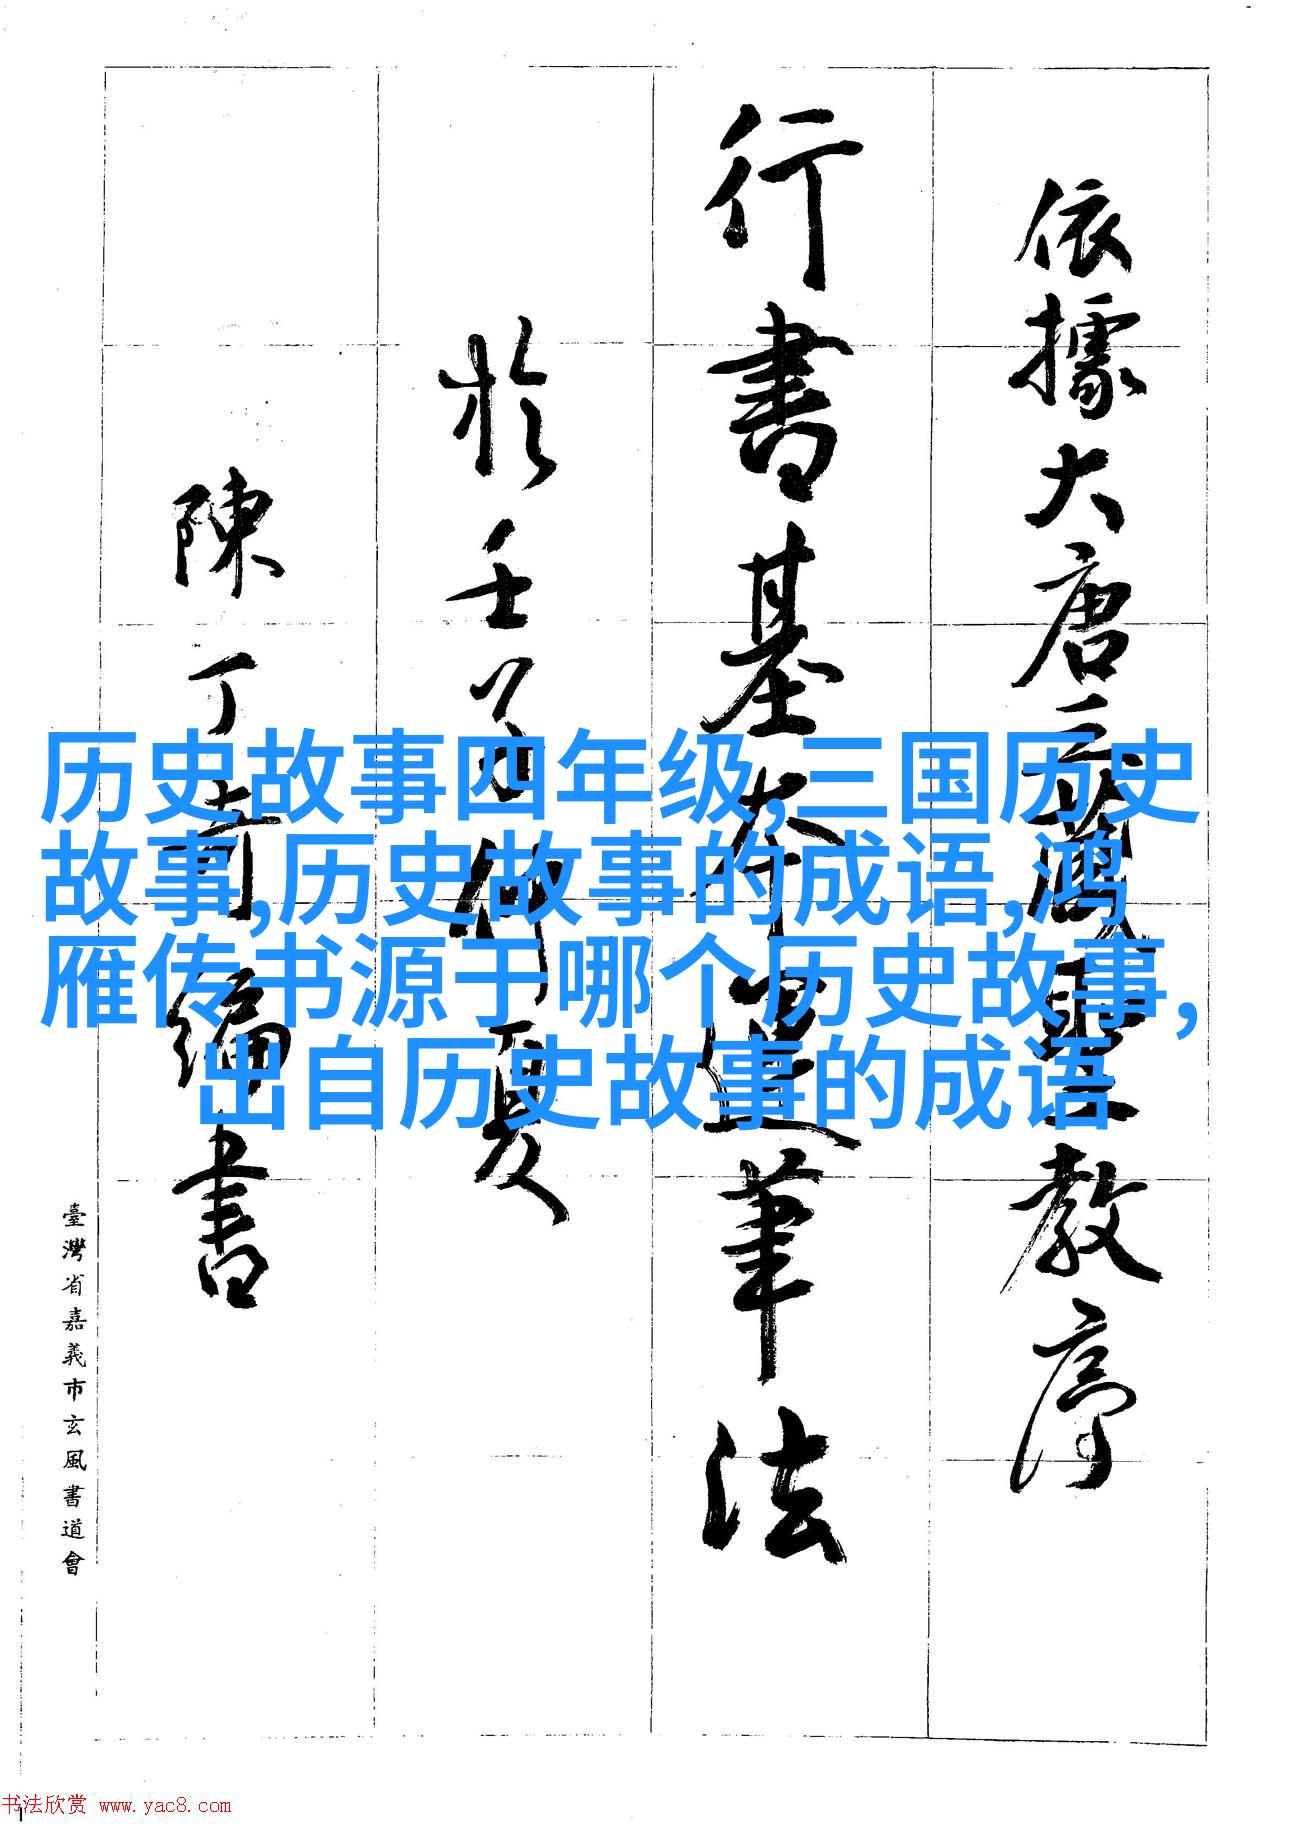 依據大唐三藏聖教序
行書基本運筆法
於壬子仲夏
陳丁奇編書
臺灣省嘉義市玄風書道會
历史故事四年级,三国历史
故事,历史故事的成语,鸿
雁传书源于哪个历史故事,
出自历史故事的成语
书法欣赏 www.yac8.com